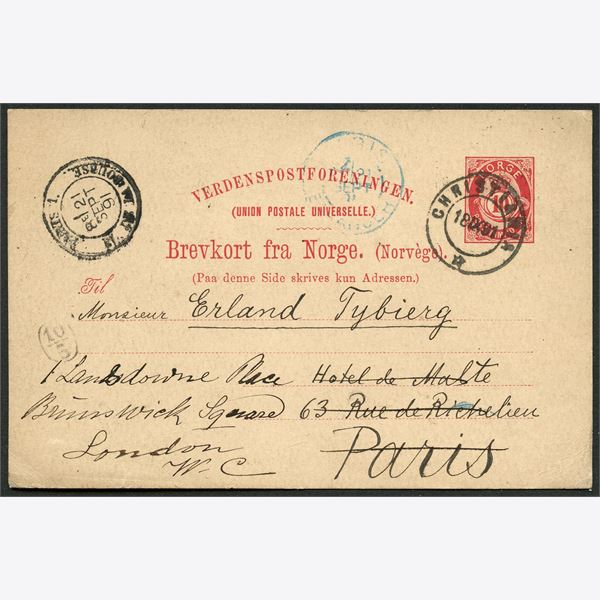 VERDENSPOSTFORENINGEN.
(UNION POSTALE UNIVERSELLE.)
Brevkort fra Norge. (Norvège).
(Paa denne Side skrives kun Adressen.)
NORGE
CHRISTIANIA
18 IX 91
PARIS 1
BOURSE
21
SEPT
91
Til
Monsieur Erland Tybierg
1 Landsdowne Place Hotel de Malte
Brunswick Square 63 Rue de Richelieu
London Paris
W.C